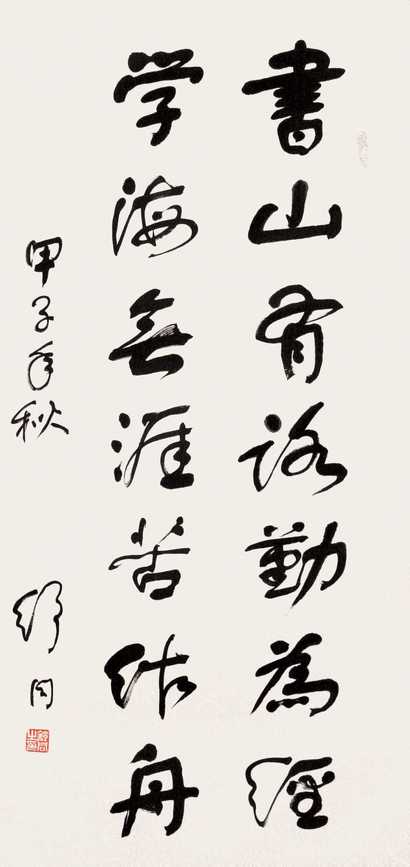 書山有路勤為經
学海無涯苦作舟
甲子年秋
舒同